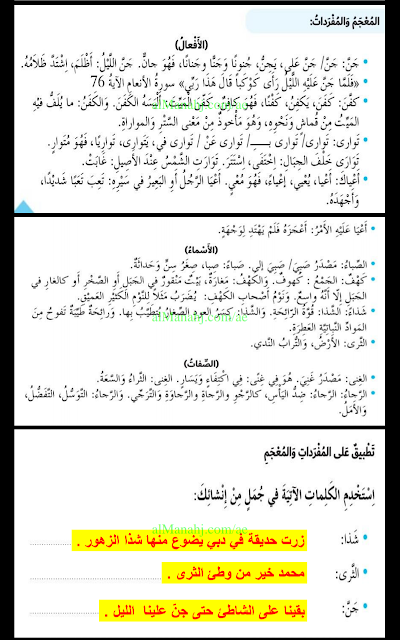 المُعْجَمُ وَالمُفْرَداتُ:
(الأَفْعالُ)
• جَنَّ: جَنَّ/ جَنَّ عَلى، يَجِنُّ، جُنونًا وَجَنًّا وَجنانًا، فَهُوَ جانٌّ. جَنَّ اللَّيْلُ: أَظْلَمَ، اِشْتَدَّ ظَلامُهُ.
• «فَلَمَّا جَنَّ عَلَيْهِ اللَّيْلُ رَأَى كَوْكَباً قَالَ هَذَا رَبِّي» سورةُ الأنعامِ الآيةُ 76
• كفَّنَ: كَفَنَ، يَكفِنُ، كَفْنًا، فَهُوَ كافِنٌ. كَفَّنَ الْمَيِّتَ: أَلْبَسَهُ الْكَفَنَ. وَالْكَفَنُ: ما يُلَفُّ فيْهِ
المَيِّتُ مِنْ قُماشٍ وَنَحْوِهِ، وَهُوَ مَأْخوذٌ مِنْ مَعْنى السَّتْرِ وَالمواراةِ.
• تَوارى: تَوارى/ تَوارى بـــ/ تَوارى عَنْ / تَوارى في، يَتَوارى، تَوارِيًا، فَهُوَ مُتَوارٍ.
تَوَارَى خَلْفَ الجِبَالِ: اِخْتَفَى، اِسْتَتَرَ. تَوَارَتِ الشَّمْسُ عِنْدَ الأَصِيلِ: غَابَتْ.
• أَعْياكَ: أَعْيا، يُعْيي، إعْياءً، فَهُوَ مُعْيٍ. أعْيَا الرَّجُلُ أَوِ البَعيرُ في سَيْرِهِ: تَعِبَ تَعَبًا شَديْدًا،
وَأَجْهَدَهُ.
• أَعْيَا عَلَيْهِ الأَمْرُ: أَعْجَزَهُ فَلَمْ يَهْتَدِ لِوَجْهَةٍ.
(الأَسْماءُ)
• الصِّباءُ: مَصْدَرُ صَبِيَ/ صَبِيَ إلى. صَباءُ: صِبا، صِغَرُ سِنٍّ وَحَداثَةٌ.
• كَهْفٌ: الجَمْعُ : كُهوفٌ. وَالكَهْفُ: مَغارَةٌ، بَيْتٌ مَنْقورٌ في الجَبَلِ أَوِ الصَّخْرِ أَو كالغارِ في
الجَبَلِ إلّا أَنَّهُ واسِعٌ. وَنَوْمُ أَصْحابِ الكَهْفِ: يُضْرَبُ مَثَلاً للنَّوْمِ الكَثيْرِ العَميْقِ.
• شَذاءُ: الشَّذا: قُوَّةُ الرّائِحَةِ. وَالشَّذا: كِسَرُ العودِ الصِّغارُ يُتَطَيَّبُ بِها. وَرائِحَةٌ طَيِّبَةٌ تَفوحُ مِنَ
المَوادِّ النَّباتِيَّةِ العَطِرَةِ.
• الثَّرى: الأَرْضُ، وَالتُّرابُ النَّدي.
(الصِّفاتُ)
• الغِنى: مَصْدَرُ غَنِيَ. هُوَ في غِنًى: في اِكْتِفاءٍ وَيَسارٍ. الغِنى: الثَّراءُ وَالسَّعَةُ.
• الرَّجاءُ: الرجاءُ: ضِدُّ اليَأْسِ، كالرَّجْوِ وَالرَّجاةِ وَالرَّجاوَةِ وَالتَّرَجّي. وَالرَّجاءُ: التَّوَسُّلُ، التَّفَضُّلُ،
وَالأَمَلُ.
almanahj.com/ae
تَطْبيقٌ عَلى المُفْرَداتِ وَالمُعْجَمِ
اِسْتَخْدِمِ الكَلِماتِ الآتِيَةَ في جُمَلٍ مِنْ إِنْشائِكَ:
almanahj.com/ae
• شَذَا: زرت حديقة في دبي يضوع منها شذا الزهور .
• الثَّرى: محمد خير من وطئ الثرى .
• جَنَّ: بقينا على الشاطئ حتى جنّ علينا الليل .